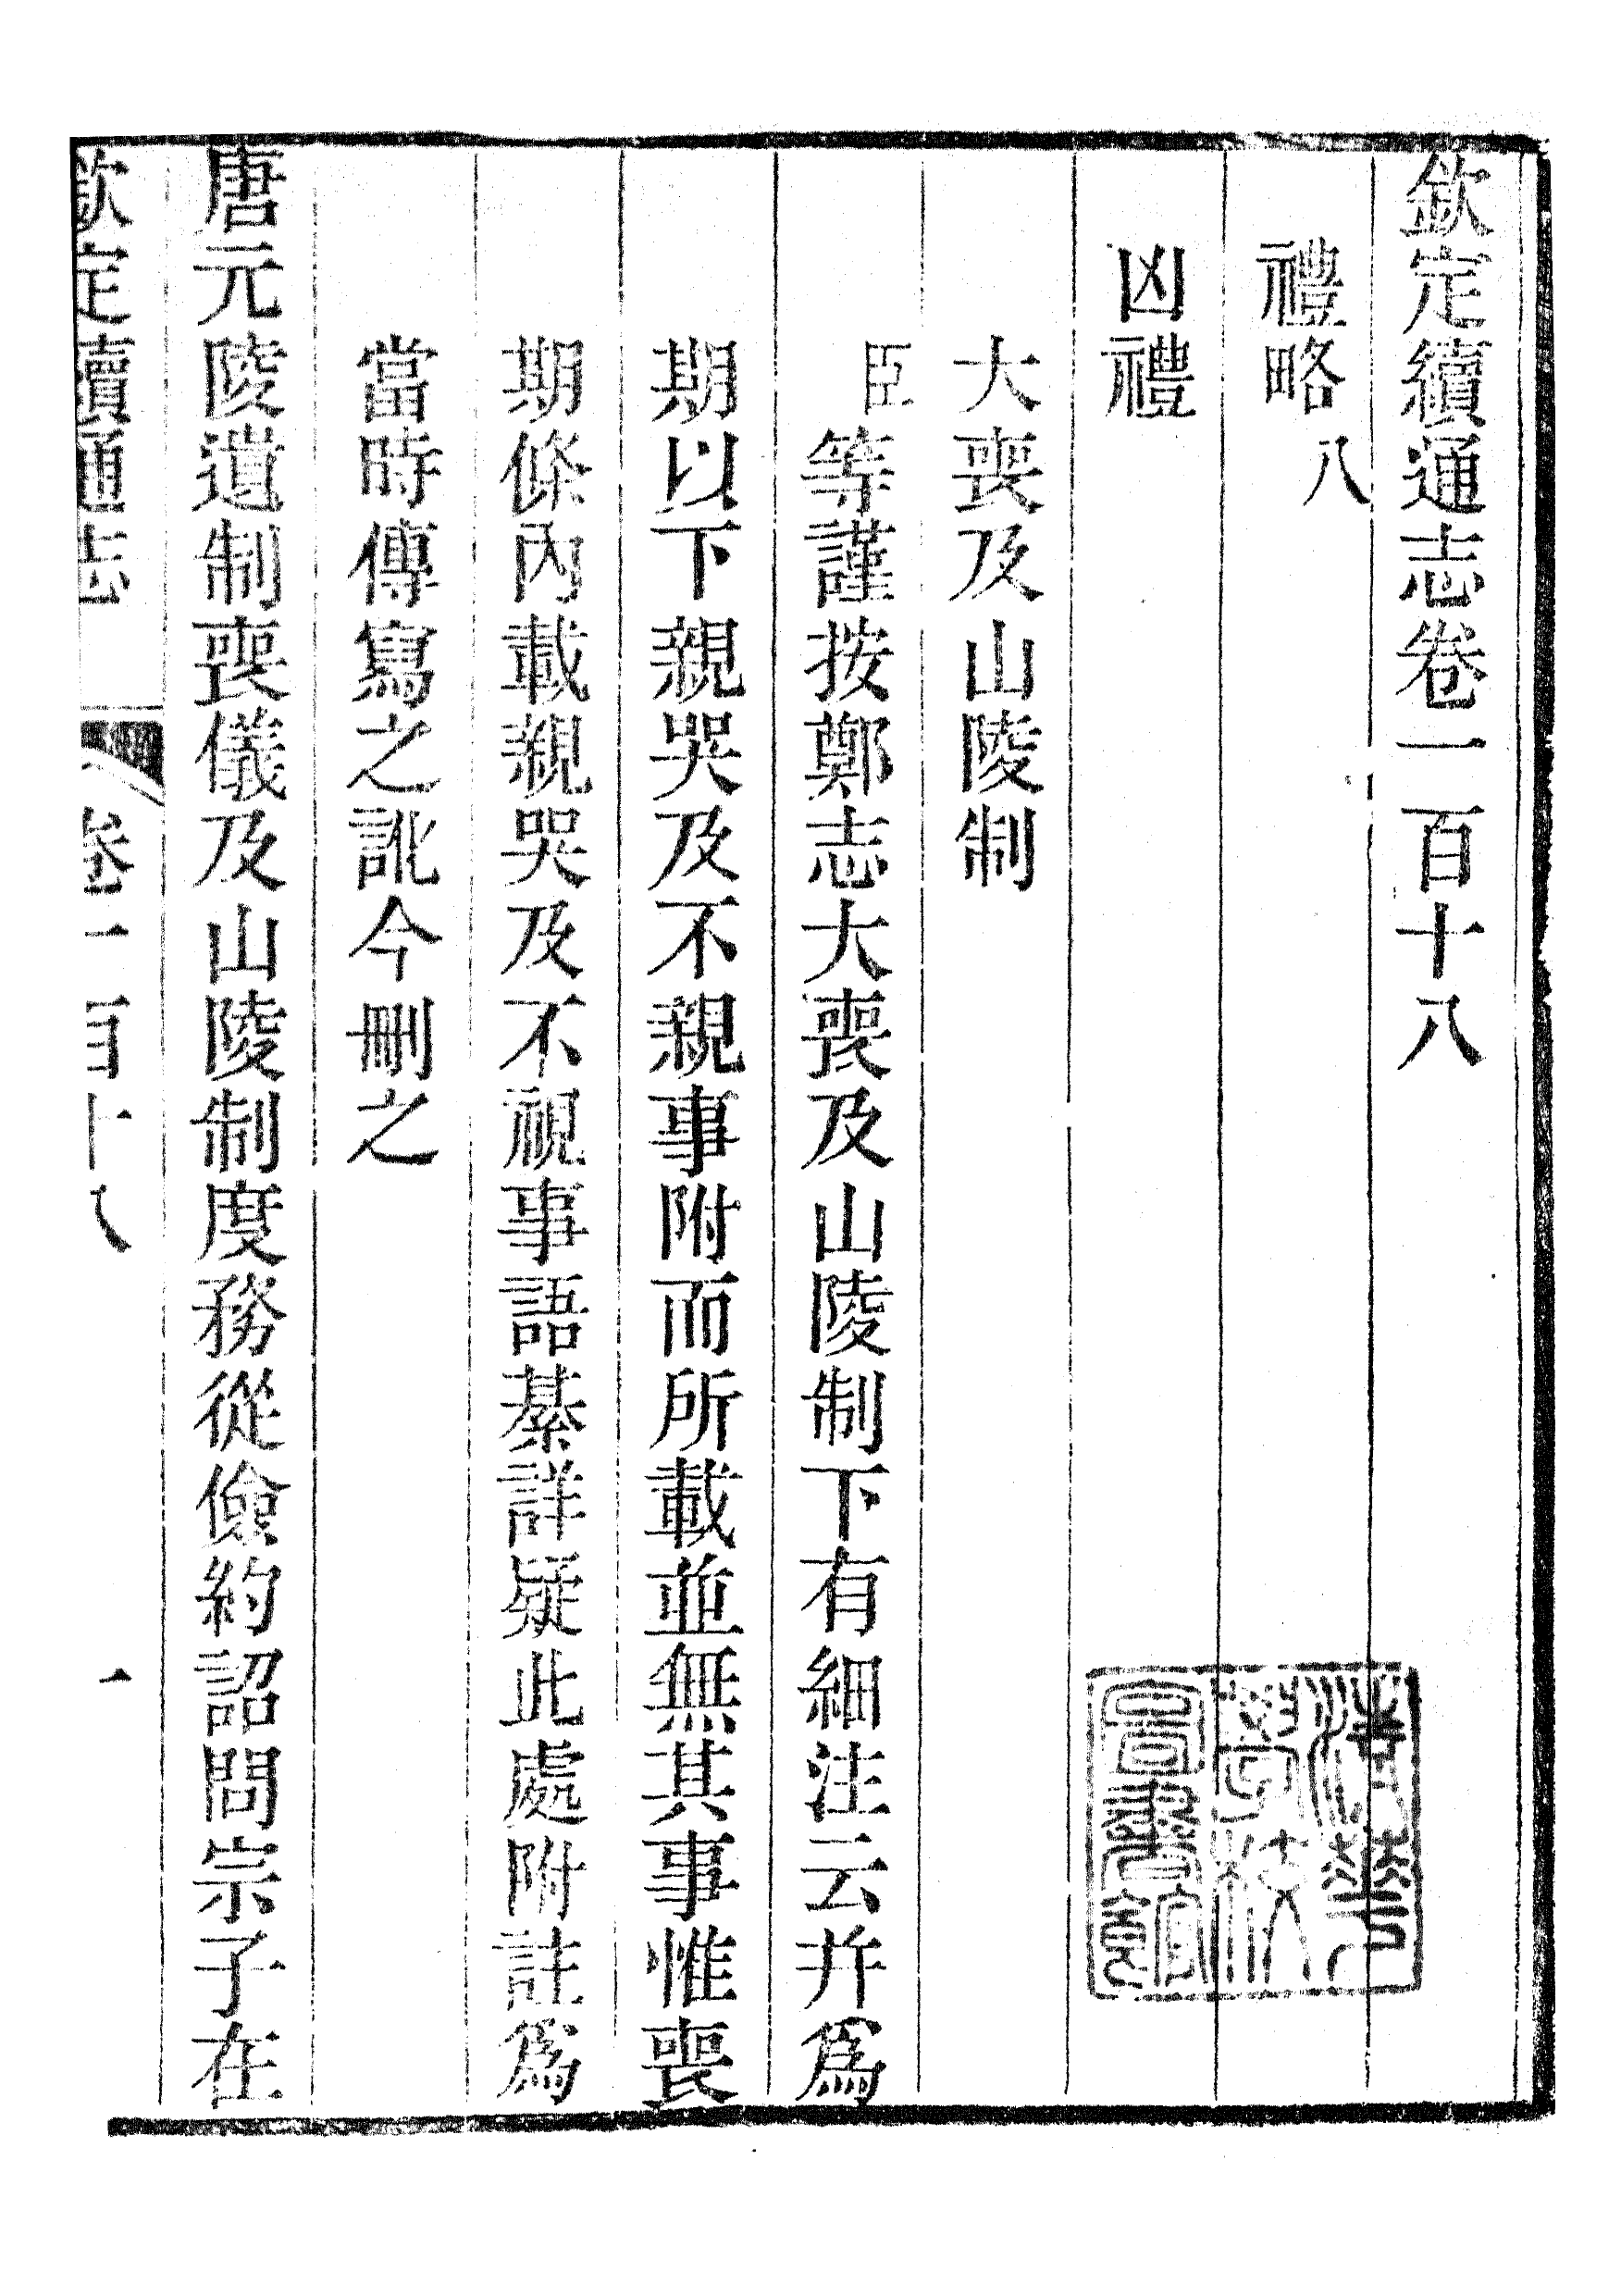 欽定續通志卷一百十八
禮略八
凶禮
大喪及山陵制
臣等謹按鄭志大喪及山陵制下有細注云并爲
期以下親哭及不親事附而所載並無其事惟喪
期條內載親哭及不視事語綦詳疑此處附註爲
當時傳寫之訛今刪之
唐元陵遺制喪儀及山陵制度務從儉約詔問宗子在
欽定續通志 卷一百十八 一
清華
學校
圖書館